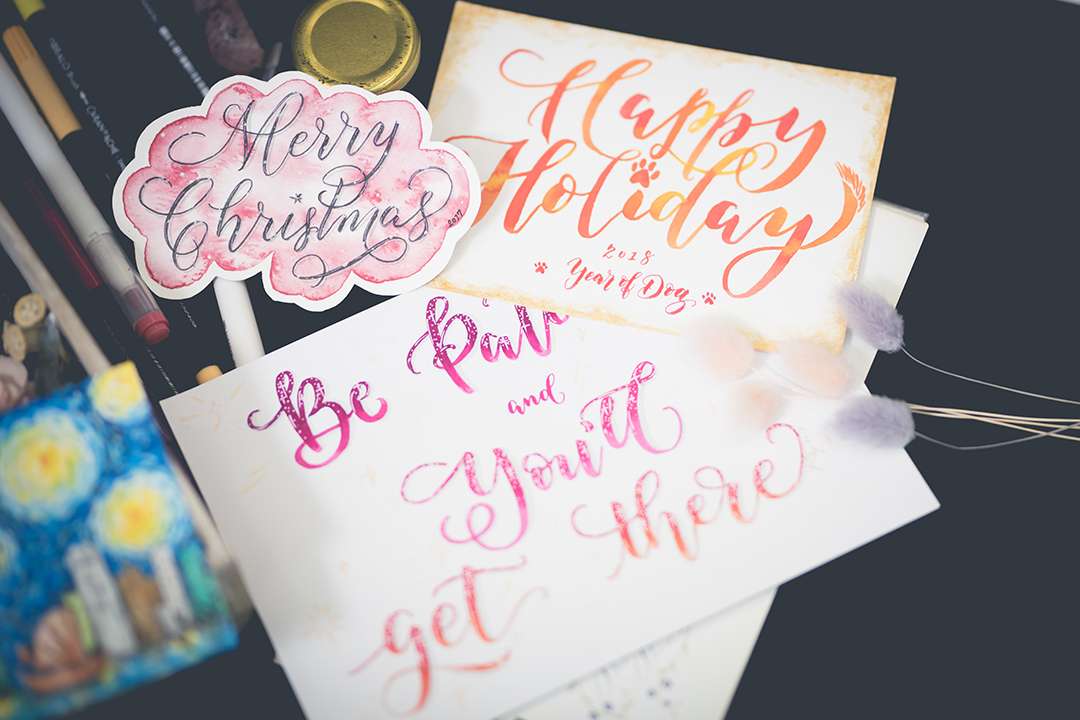 Merry
Christmas
2017
Happy
Holiday
2018
Year of Dog
Be
and
you'll
get there